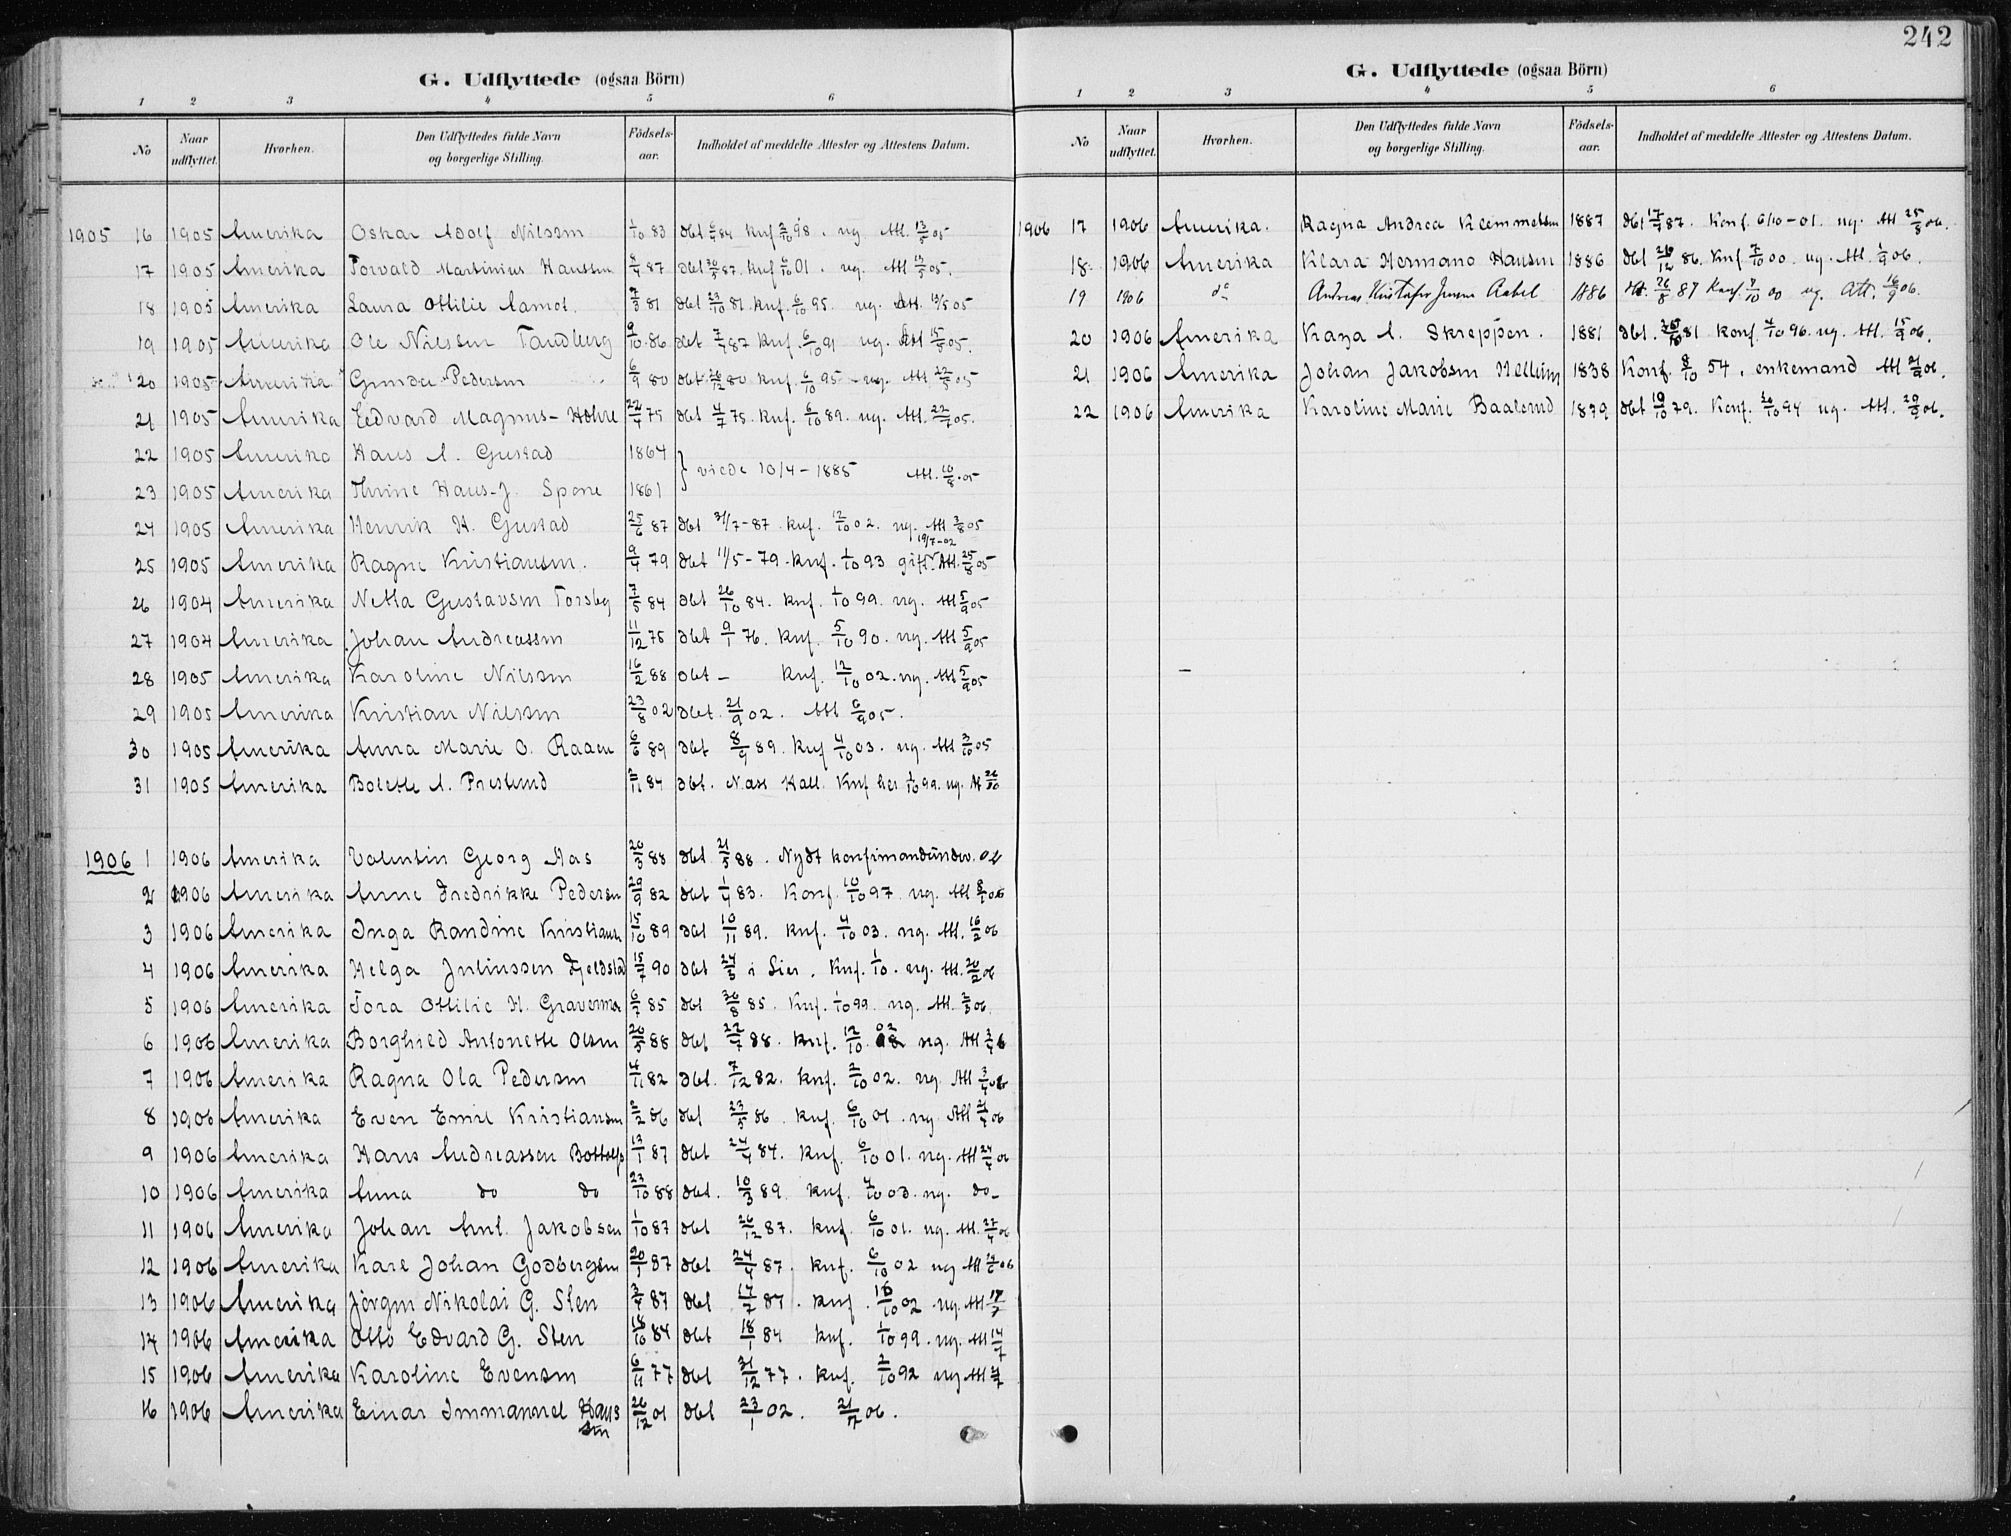 242
G. Udflyttede (ogsaa Börn)
1 2 3 4 5 6
No Naar udflyttet. Hvorhen. Den Udflyttedes fulde Navn og borgerlige Stilling. Födsels-aar. Indholdet af meddelte Attester og Attestens Datum.
1905 16 1905 Amerika Oskar Adolf Nilssen 1/10 83 døbt 6/4 84 knf 2/10 98. ng. Att. 13/5 05
17 1905 Amerika Torvald Martinius Hanssen 8/4 87 døbt 30/5 87. knf 6/10 01. ng. Att 13/5 05.
18 1905 Amerika Laura Ottilie Aamot. 7/3 81 døbt 23/10 81. knf. 6/10 95. ng. Att. 13/5 05
19 1905 Amerika Ole Nilssen Tandberg 9/10 86 døbt 7/4 87 knf. 6/10 91 ng. Att 15/5 05.
20 1905 Amerika Gunda Pedersen 6/9 80 døbt 26/12 80 knf. 6/10 95 - ng. Att 22/5 05
21 1905 Amerika Eedvard Magnus- Holne 22/4 75 døbt 4/7 75. knf. 6/10 89. ng. Att. 22/7 05.
22 1905 Amerika Hans A. Gustad 1864
} viede 10/4 - 1885 Att. 10/8 05
23 1905 Amerika Thrine Hans-J. Spone 1861
24 1905 Amerika Henrik H. Gustad 25/6 87 døbt 31/7-87. knf. 12/10 02. ng. Att 3/8 05
25 1905 Amerika Ragne Kristiansen. 9/4 79 døbt 11/5-79. knf. 1/10 93 gift 19/7-02 Att. 25/8 05
26 1904 Amerika Netta Gustavsen Torsby 7/5 84 døbt 26/10 84. knf. 1/10 99. ng. Att 5/9 05
27 1904 Amerika Johan Andreassen 11/12 75 døbt 9/1 76. knf. 5/10 90. ng. Att 5/9 05
28 1905 Amerika Karoline Nilssen 16/2 88 døbt - knf. 12/10 02. ng. Att 5/9 05
29 1905 Amerika Kristian Nilssen 23/8 02 døbt. 21/9 02. Att 6/9 05.
30 1905 Amerika Anna Marie O. Raaen 6/6 89 døbt 8/9 89. knf 4/10 03. ng. Att 3/10 05
31 1905 Amerika Bolette A. Prestrud 2/11 84 døbt. Næs Hall. Knf her 1/10 99. ng. At 26/10
1906 1 1906 Amerika Valentin Georg Aas 26/3 88 døbt 21/5 88. Nydt konfirmandunderv. 02
2 1906 Amerika Anne Fredrikke Pedersen 29/9 82 døbt 1/4 83. Konf. 10/10 97 ng. Att 8/1 06
3 1906 Amerika Inga Randine Kristiansen 15/10 89 døbt 10/11 89. knf. 4/10 03. ng. Att. 16/2 06
4 1906 Amerika Helga Juliussen Fjeldstad 15/7 90 døbt 24/5 i Lier. Knf. 1/10. ng. Att. 20/2 06
5 1906 Amerika Tora Ottilie H. Gravermoen 6/7 85 døbt 30/8 85. Knf. 1/10 99. ng. Att. 2/3 06
6 1906 Amerika Borghild Antonette Olsen 20/5 88 døbt 22/7 88. knf. 12/10 02 ng. Att 3/4 6
7 1906 Amerika Ragna Ola Pedersen 4/11 82 døbt. 7/12 82. knf. 2/10 02. ng. Att 3/4 06
8 1906 Amerika Even Emil Kristiansen 2/2 86 døbt 23/5 86. knf. 6/10 01. ng. Att 21/4 06
9 1906 Amerika Hans Andreassen Bottolfs 13/1 87 døbt 24/4 84. knf. 6/10 01. ng. Att 24/4 06
10 1906 Amerika Anna do do 23/10 88 døbt. 10/3 89. knf. 4/10 03. ng. do-
11 1906 Amerika Johan Ant. Jakobsen 1/10 87 døbt 26/12 87. knf. 6/10 01. ng. Att. 27/4 06
12 1906 Amerika Karl Johan Godbergsen 20/1 87 døbt 24/4 87. knf. 6/10 02 ng Att 26/6 06
13 1906 Amerika Jörgen Nikolai G. Sten 3/4 87 døbt 17/7 87. knf. 16/10 02. ng. Att 17/7
14 1906 Amerika Otto Edvard G. Sten 18/10 84 døbt 18/1 84 knf. 1/10 99. ng. Att 14/7
15 1906 Amerika Karoline Evensen 6/11 77 døbt 31/12 77. knf. 2/10 92 ng Att 21/7
16 1906 Amerika Einar Immanuel Hanssen 26/12 01 døbt 23/1 02. 21/7 06.
G. Udflyttede (ogsaa Börn)
1 2 3 4 5 6
No Naar udflyttet. Hvorhen. Den Udflyttedes fulde Navn og borgerlige Stilling. Födsels-aar. Indholdet af meddelte Attester og Attestens Datum.
1906 17 1906 Amerika. Ragna Andrea Klemmetsen 1887 døbt 17/4 87. Konf. 6/10-01. ng. Att 25/8 06.
18 1906 Amerika Klara Hermana Hansen 1886 døbt 26/12 86. Knf 7/10 00. ng. Att. 1/9 06.
19 1906 do Andreas Kristofer Jensen Aabel 1886 døbt. 26/8 87 Konf. 7/10 00 ng. Att. 16/9 06.
20 1906 Amerika Kaza A. Skreppen. 1881 døbt. 26/10 81 konf. 4/10 96. ng. Att. 15/9 06.
21 1906 Amerika Johan Jakobsen Hellum 1838 Konf. 8/10 54. enkemand Att 21/9 06.
22 1906 Amerika Karoline Marie Baalsrud 1879 døbt 19/10 79. Konf. 30/10 94 ng. Att. 29/9 06.